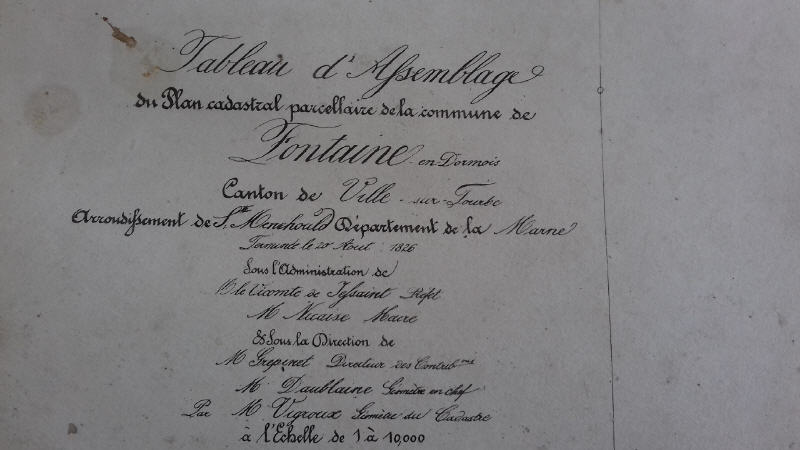 Tableau d'Assemblage
du Plan cadastral parcellaire de la commune de
Fontaine en Dormois
Canton de Ville-sur-Tourbe
Arrondissement de Ste Menehould Département de la Marne
Terminée le 20 Aout 1826
Sous l'Administration de
le Vicomte de Jessaint Préfet
M Nicaise Maire
& Sous la Direction de
M Grepinet Directeur des Contribons
M Daublaine Géomètre en chef
Par M Vigroux Géomètre du Cadastre
à l'Echelle de 1 à 10,000